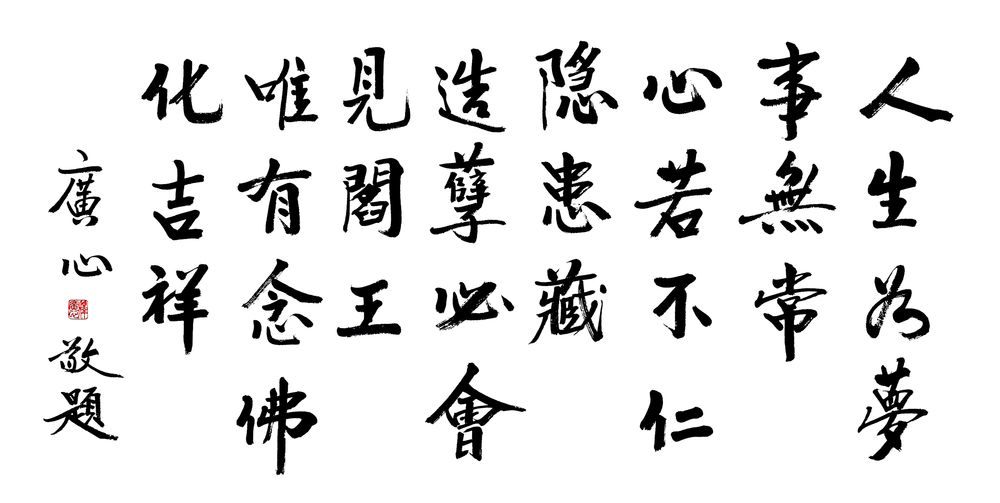 人生为夢
事無常
心若不仁
隐患藏
造孽必會
見閻王
唯有念佛
化吉祥
廣心
敬題